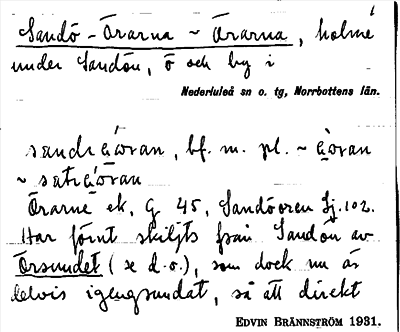 Sandö-Örarna ~ Örarna, holme
under Sandön, ö och by i
Nederluleå sn o. tg, Norrbottens län.
bf. m. pl. ~
~
Örarne ek. G 45, Sandöoren Sj. 102.
Har förut skiljts från Sandön av
Örsundet (se d.o.), som dock nu är
delvis igengrundat, så att direkt
EDVIN BRÄNNSTRÖM 1931.